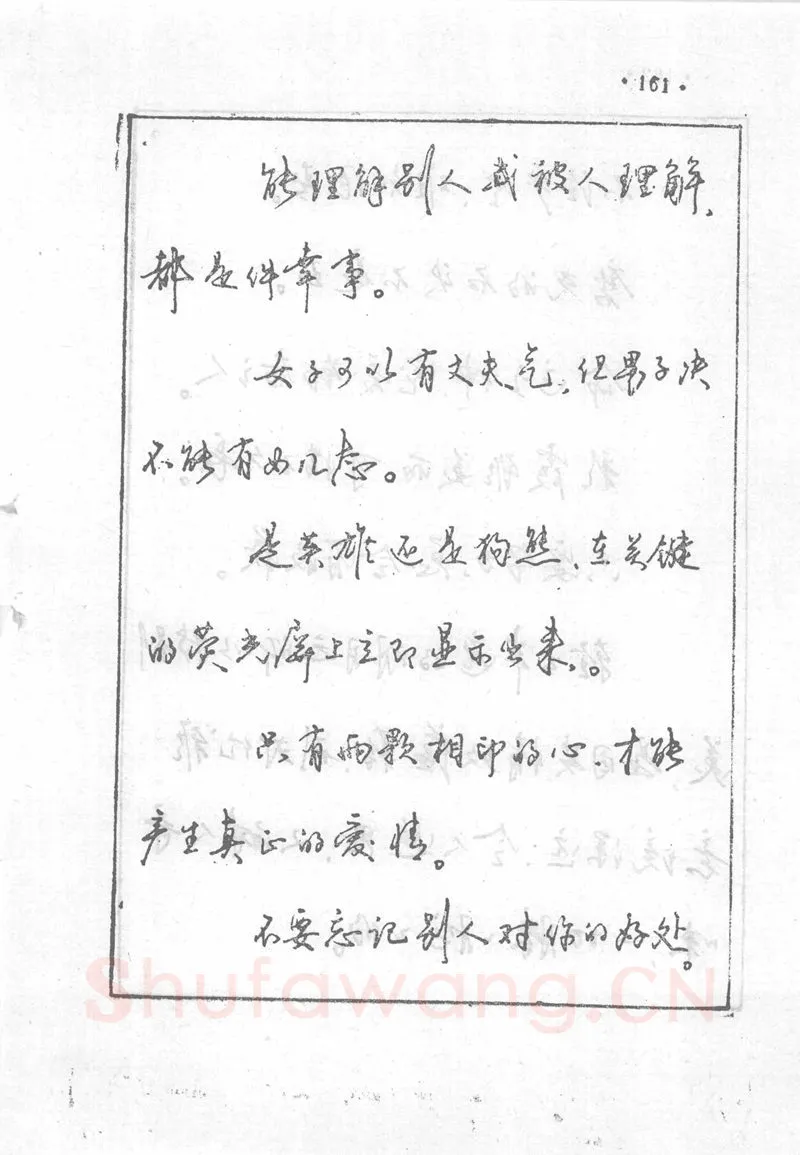 ·161·
能理解别人或被人理解，
都是件幸事。
女子可以有丈夫气，但男子决
不能有女儿态。
是英雄还是狗熊，在关键
的荧光屏上立即显示出来。
只有两颗相印的心，才能
产生真正的爱情。
不要忘记别人对你的好处。
Shufawang.CN